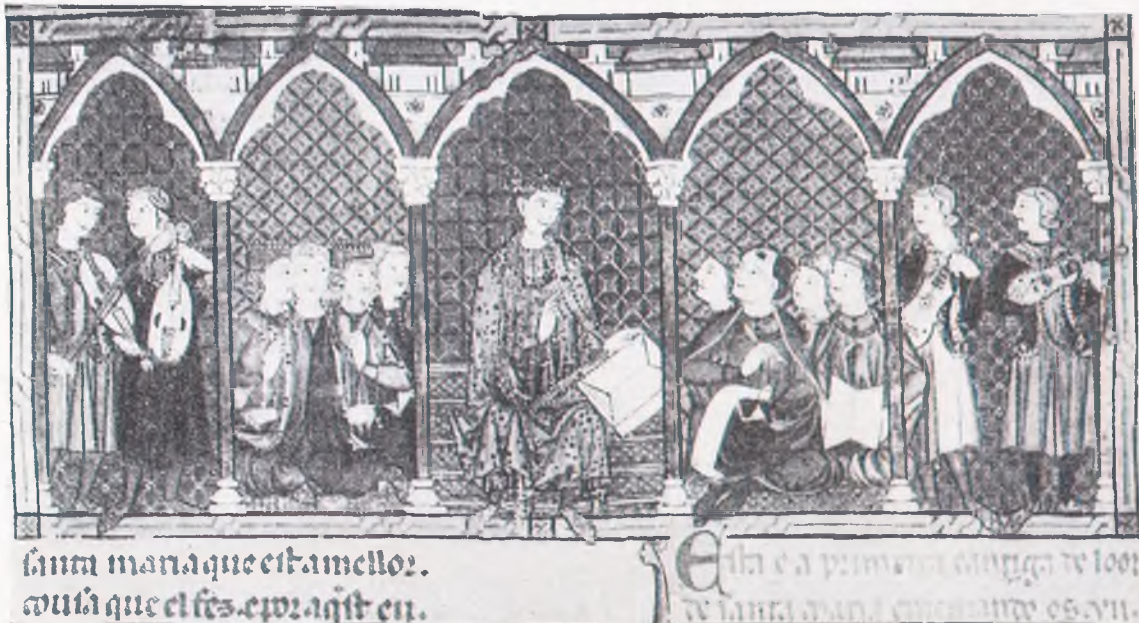 santa maria que est a mellor.
cousa que el fez. e por aqst eu.
Esta e a primeira cantiga de loor
de santa maria ementando os .vii.